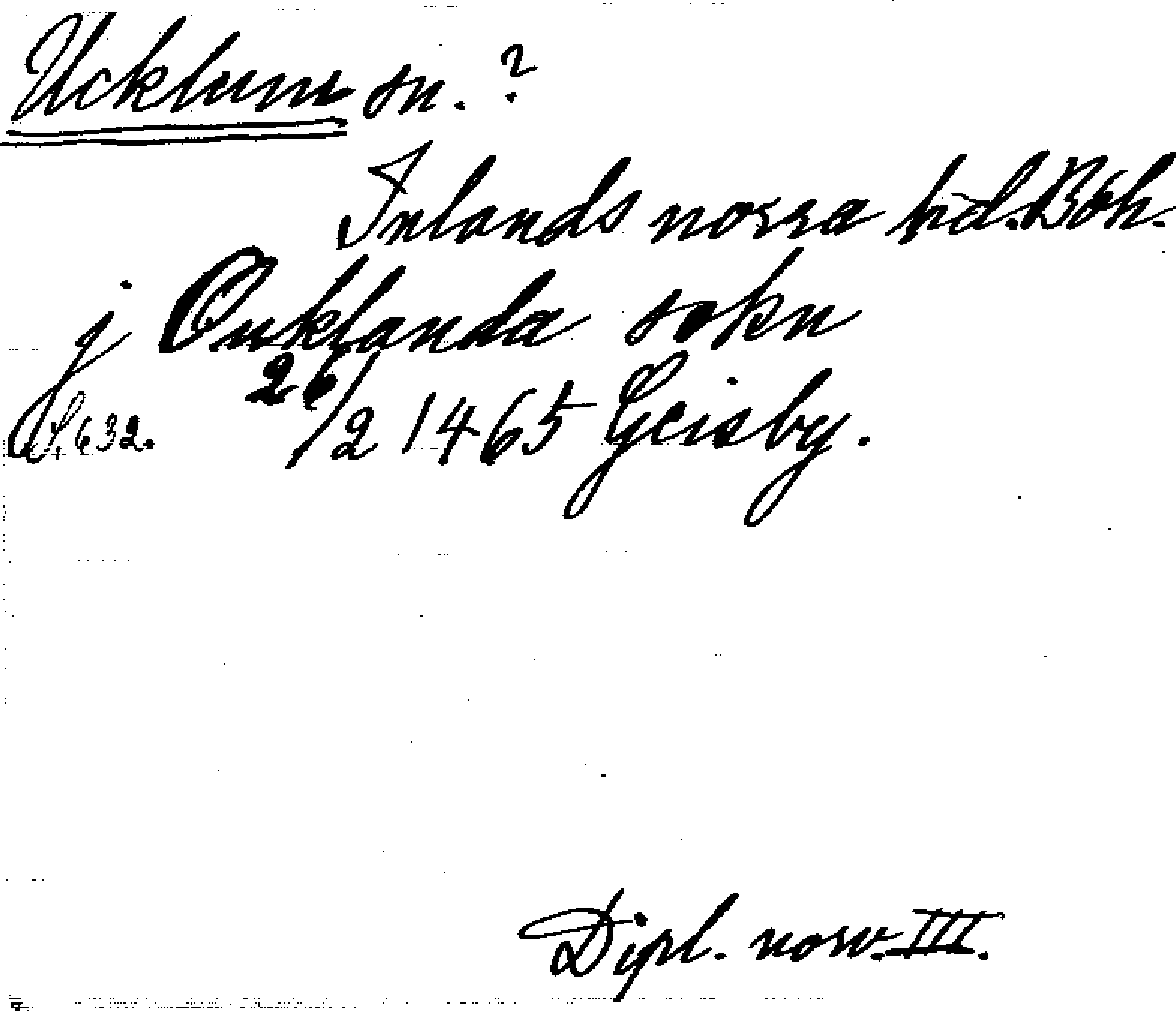 Ucklum sn. ?
Inlands norra hd. Boh.
j Ouklanda sokn
S. 632. 26/2 1465 Geisby.
Dipl. norv. III.